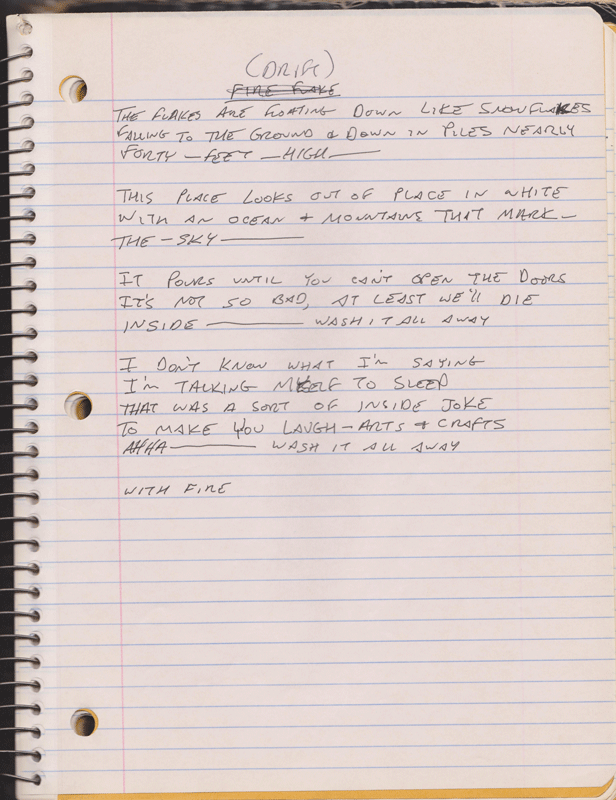 (DRIFT)
FIRE FLAKE
THE FLAKES ARE FLOATING DOWN LIKE SNOWFLAKES
FALLING TO THE GROUND & DOWN IN PILES NEARLY
FORTY — FEET — HIGH ———
THIS PLACE LOOKS OUT OF PLACE IN WHITE
WITH AN OCEAN + MOUNTAINS THAT MARK —
THE — SKY ———
IT POURS UNTIL YOU CAN'T OPEN THE DOORS
IT'S NOT SO BAD, AT LEAST WE'LL DIE
INSIDE ——— WASH IT ALL AWAY
I DON'T KNOW WHAT I'M SAYING
I'M TALKING MYSELF TO SLEEP
THAT WAS A SORT OF INSIDE JOKE
TO MAKE YOU LAUGH — ARTS & CRAFTS
AHHA ——— WASH IT ALL AWAY
WITH FIRE